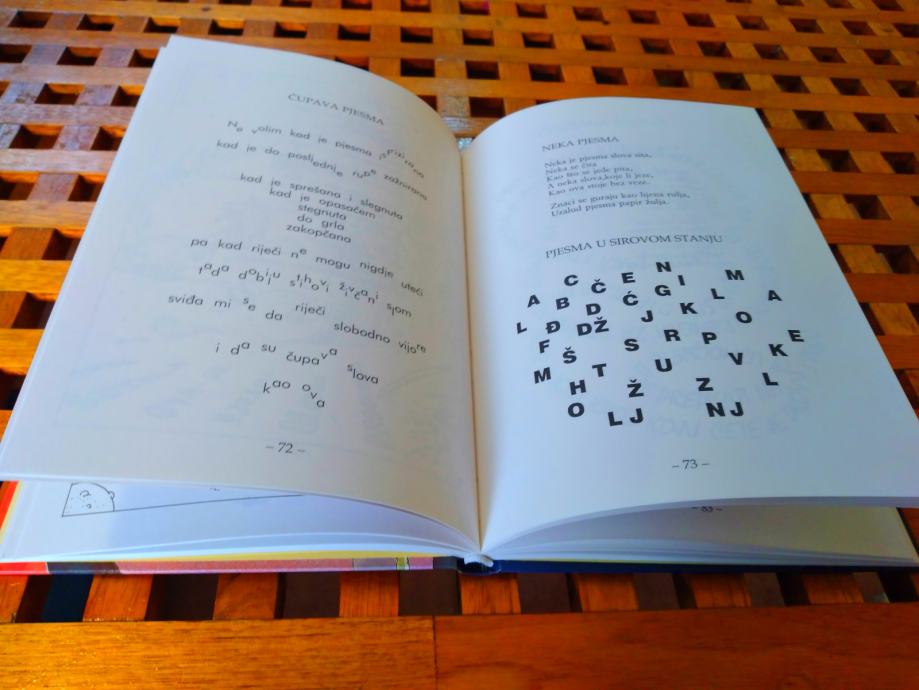 ČUPAVA PJESMA
Ne volim kad je pjesma isfrizirana
kad je do posljednje rupe zašnirana
kad je sprešana i slegnuta
kad je opasačem
stegnuta
do grla
zakopčana
pa kad riječi ne mogu nigdje uteći
tada dobiju stihovi živčani slom
sviđa mi se da riječi slobodno vijore
i da su čupava slova
kao ova
– 72 –
NEKA PJESMA
Neka je pjesma slova sita,
Neka se čita
Kao što se jede pita,
A neka slova,koje li jeze,
Kao ova stoje bez veze.
Znaci se guraju kao lijena rulja,
Uzalud pjesma papir žulja.
PJESMA U SIROVOM STANJU
C Č E N G I M
A B D Ć L A
L Đ DŽ J K O
F Š S R P V K E
M H T Ž U Z L
O LJ NJ
– 73 –